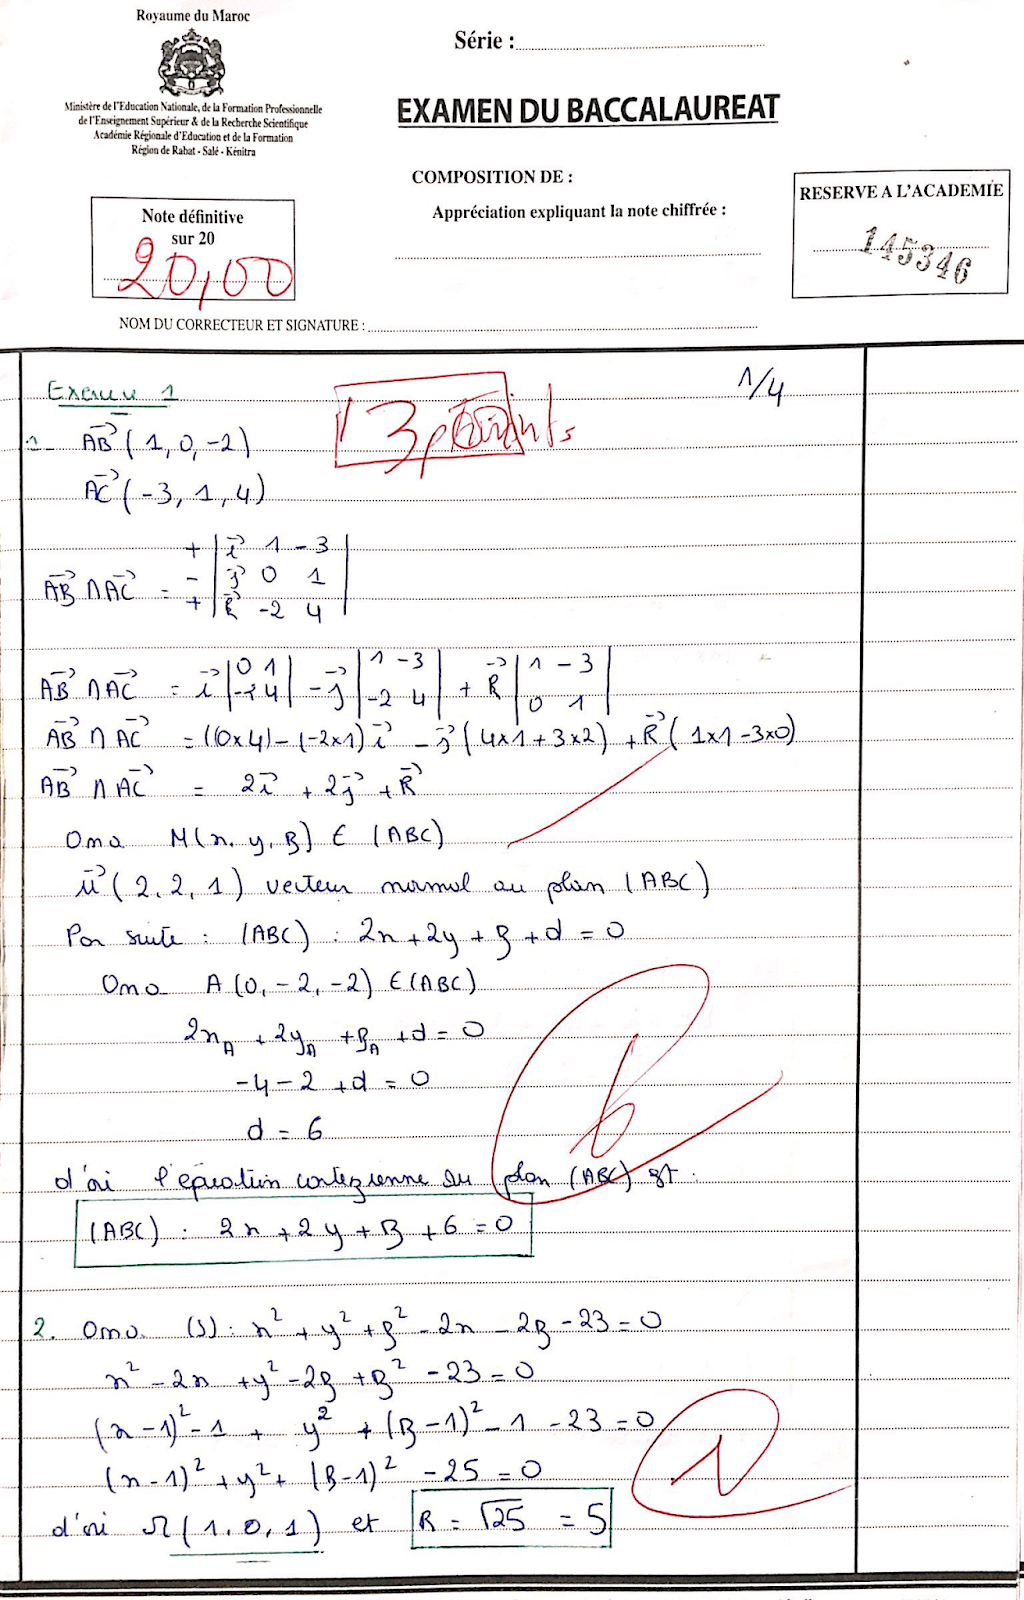 Royaume du Maroc
Ministère de l'Education Nationale, de la Formation Professionnelle
de l'Enseignement Supérieur & de la Recherche Scientifique
Académie Régionale d'Education et de la Formation
Région de Rabat - Salé - Kénitra
Série :
EXAMEN DU BACCALAUREAT
COMPOSITION DE :
Appréciation expliquant la note chiffrée :
RESERVE A L'ACADEMIE
145346
Note définitive
sur 20
20,00
NOM DU CORRECTEUR ET SIGNATURE :
Exercice 1
1/4
3 points
1. AB⃗ (1, 0, -2)
AC⃗ (-3, 1, 4)
AB⃗ ∧ AC⃗ = + | i⃗ 1 -3 |
- | j⃗ 0 1 |
+ | k⃗ -2 4 |
AB⃗ ∧ AC⃗ = i⃗ |0 1; -2 4| - j⃗ |1 -3; -2 4| + k⃗ |1 -3; 0 1|
AB⃗ ∧ AC⃗ = ((0x4) - (-2x1) i⃗ - j⃗ (4x1 + 3x2) + k⃗ (1x1 - 3x0)
AB⃗ ∧ AC⃗ = 2i⃗ + 2j⃗ + k⃗
On a M(x, y, z) ∈ (ABC)
u⃗ (2, 2, 1) vecteur normal au plan (ABC)
Par suite : (ABC) : 2x + 2y + z + d = 0
On a A(0, -2, -2) ∈ (ABC)
2x_A + 2y_A + z_A + d = 0
-4 - 2 + d = 0
d = 6
d'où l'équation cartézienne du plan (ABC) est :
(ABC) : 2x + 2y + z + 6 = 0
2. On a (S) : x² + y² + z² - 2x - 2z - 23 = 0
x² - 2x + y² - 2z + z² - 23 = 0
(x - 1)² - 1 + y² + (z - 1)² - 1 - 23 = 0
1
(x - 1)² + y² + (z - 1)² - 25 = 0
d'où Ω(1, 0, 1) et R = √25 = 5